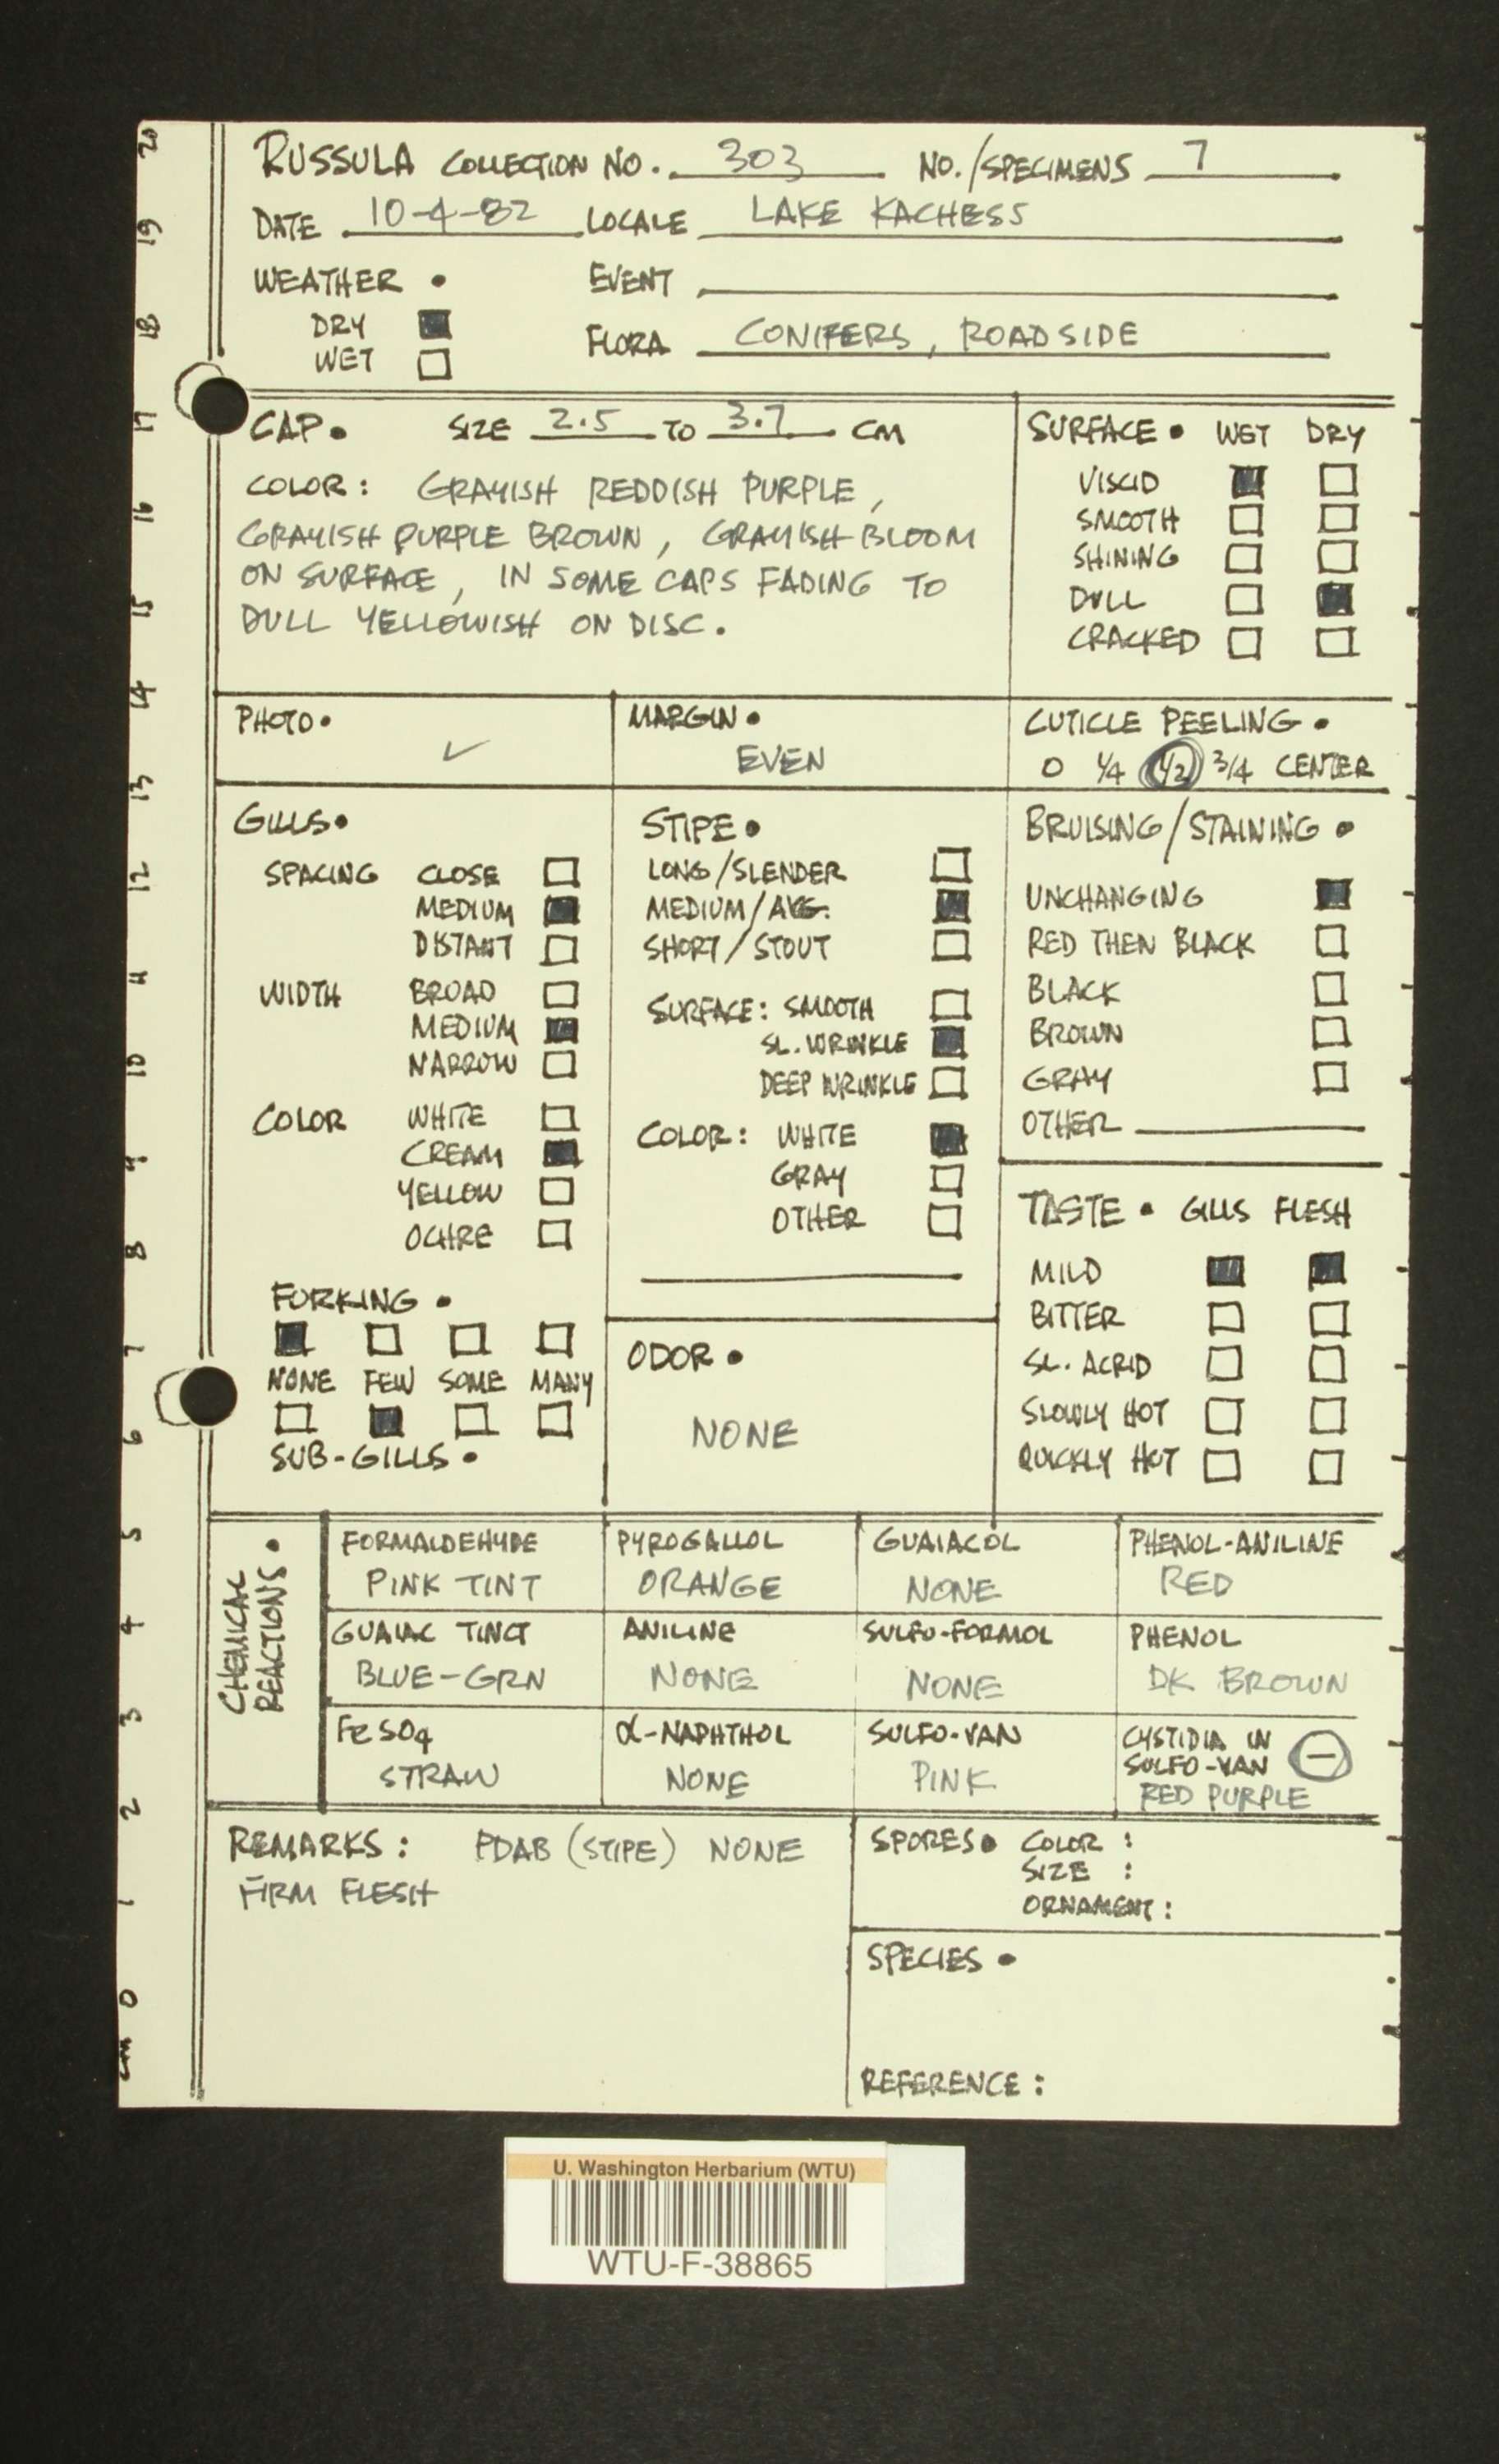 RUSSULA COLLECTION NO. 303 NO./SPECIMENS 7
DATE 10-4-82 LOCALE LAKE KACHESS
WEATHER • EVENT
DRY
WET
FLORA CONIFERS, ROADSIDE
CAP • SIZE 2.5 TO 3.7 CM
COLOR: GRAYISH REDDISH PURPLE,
GRAYISH PURPLE BROWN, GRAYISH BLOOM
ON SURFACE, IN SOME CAPS FADING TO
DULL YELLOWISH ON DISC.
SURFACE • WET DRY
VISCID
SMOOTH
SHINING
DULL
CRACKED
PHOTO •
✓
MARGIN •
EVEN
CUTICLE PEELING •
0 1/4 1/2 3/4 CENTER
GILLS •
SPACING CLOSE
MEDIUM
DISTANT
WIDTH BROAD
MEDIUM
NARROW
COLOR WHITE
CREAM
YELLOW
OCHRE
FORKING •
NONE FEW SOME MANY
SUB-GILLS •
STIPE •
LONG/SLENDER
MEDIUM/AVG.
SHORT/STOUT
SURFACE: SMOOTH
SL. WRINKLE
DEEP WRINKLE
COLOR: WHITE
GRAY
OTHER
ODOR •
NONE
BRUISING/STAINING •
UNCHANGING
RED THEN BLACK
BLACK
BROWN
GRAY
OTHER
TASTE • GILLS FLESH
MILD
BITTER
SL. ACRID
SLOWLY HOT
QUICKLY HOT
CHEMICAL
REACTIONS •
FORMALDEHYDE PYROGALLOL GUAIACOL PHENOL-ANILINE
PINK TINT ORANGE NONE RED
GUAIAC TINCT ANILINE SULFO-FORMOL PHENOL
BLUE-GRN NONE NONE DK BROWN
FeSO4 α-NAPHTHOL SULFO-VAN CYSTIDIA IN
SULFO-VAN −
STRAW NONE PINK RED PURPLE
REMARKS: PDAB (STIPE) NONE
FIRM FLESH
SPORES • COLOR:
SIZE:
ORNAMENT:
SPECIES •
REFERENCE:
20
19
18
17
16
15
14
13
12
11
10
9
8
7
6
5
4
3
2
1
0
cm
U. Washington Herbarium (WTU)
WTU-F-38865